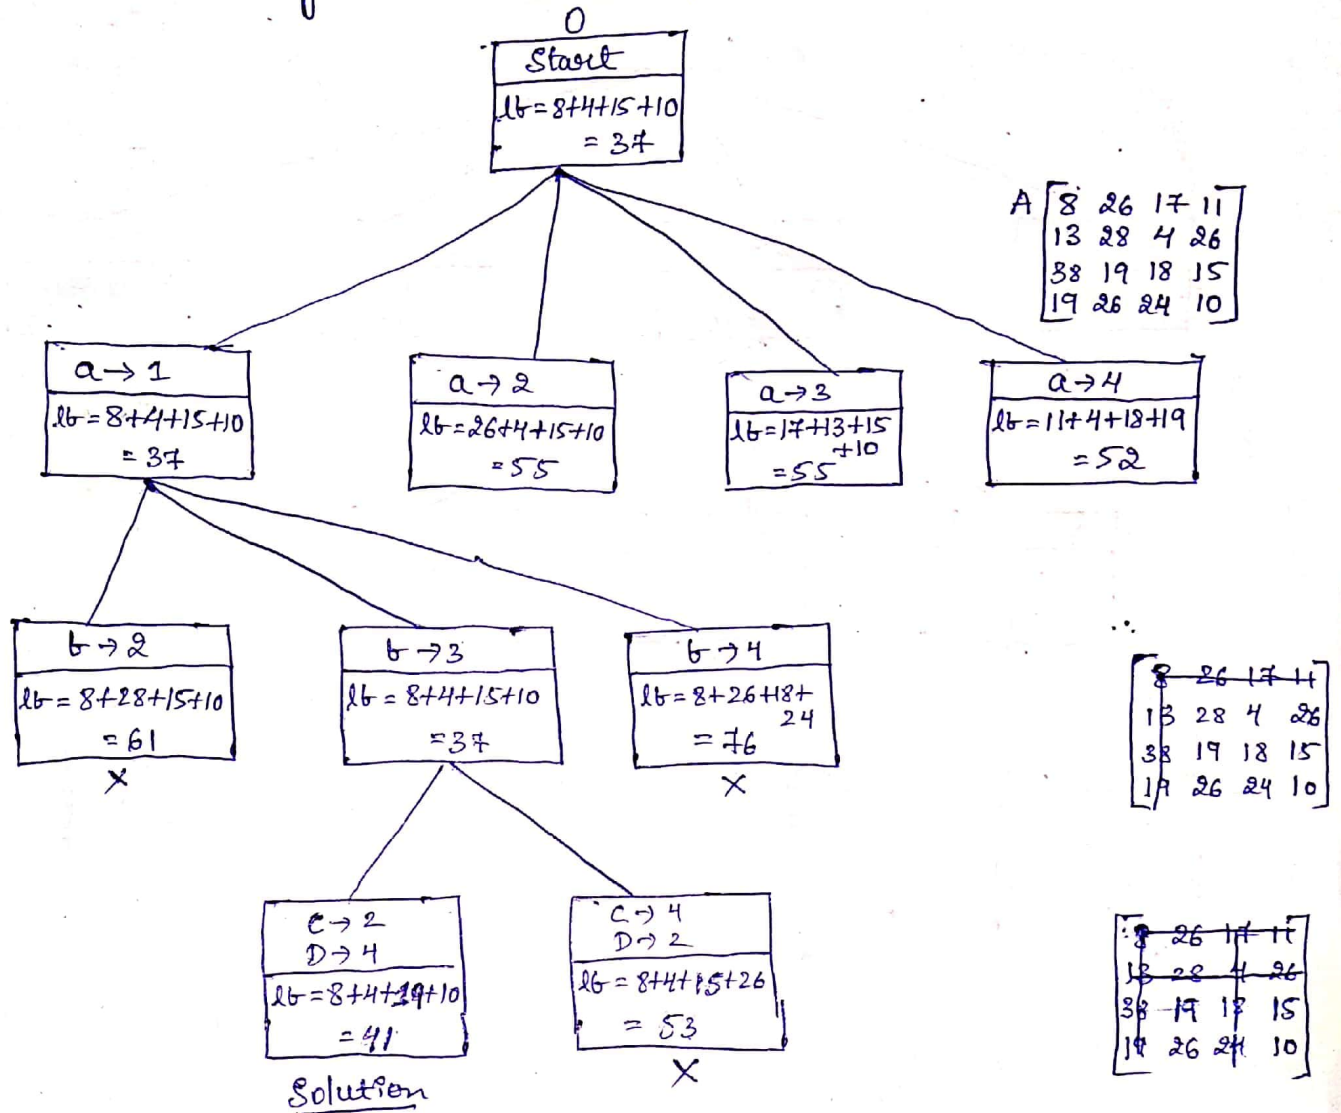 0
Start
lb = 8+4+15+10
= 37
A [8 26 17 11]
13 28 4 26
38 19 18 15
19 26 24 10
a→1
lb = 8+4+15+10
= 37
a→2
lb = 26+4+15+10
= 55
a→3
lb = 17+13+15
+10
= 55
a→4
lb = 11+4+18+19
= 52
b→2
lb = 8+28+15+10
= 61
X
b→3
lb = 8+4+15+10
= 37
b→4
lb = 8+26+18+
24
= 76
X
8 26 17 11
13 28 4 26
38 19 18 15
19 26 24 10
C→2
D→4
lb = 8+4+19+10
= 41
Solution
C→4
D→2
lb = 8+4+15+26
= 53
X
8 26 17 11
13 28 4 26
38 19 18 15
19 26 24 10